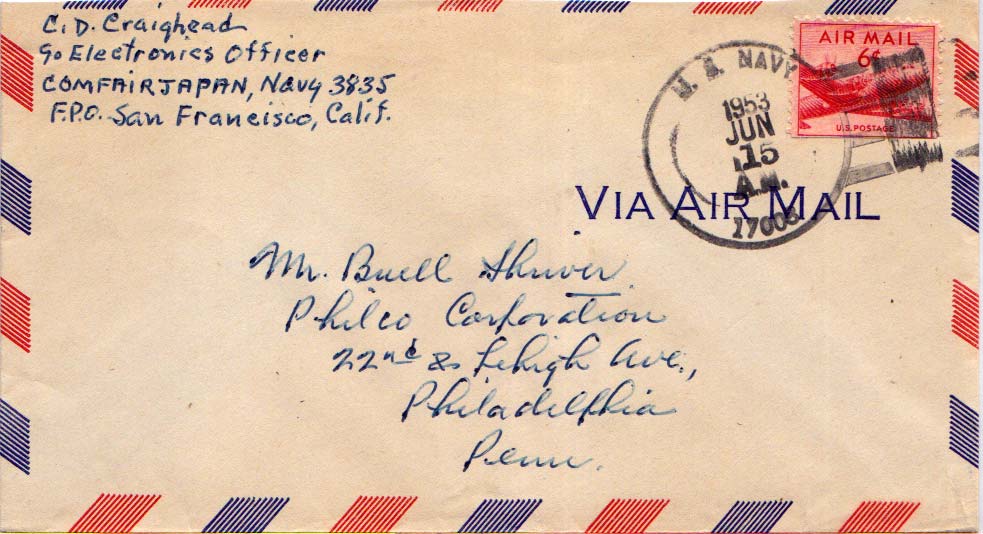 C. D. Craighead
c/o Electronics Officer
COMFAIRJAPAN, Navy 3835
F.P.O. San Francisco, Calif.
AIR MAIL
6¢
U.S. POSTAGE
U. S. NAVY
1953
JUN
15
A.M.
17008
VIA AIR MAIL
Mr. Buell Shriver
Philco Corporation
22nd & Lehigh Ave.,
Philadelphia
Penn.